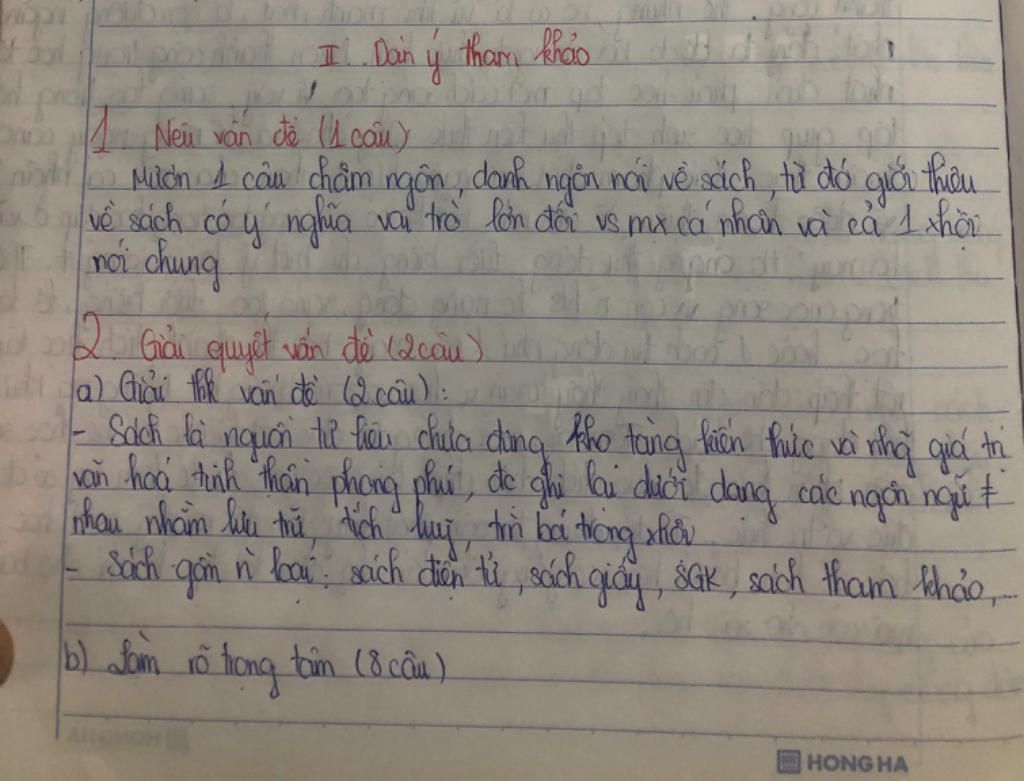 II. Dàn ý tham khảo
1 Nêu vấn đề (1 câu)
Mượn 1 câu châm ngôn, danh ngôn nói về sách từ đó giới thiệu
về sách có ý nghĩa vai trò lớn đối vs mx cá nhân và cả 1 xhội
nói chung
2 Giải quyết vấn đề (2 câu)
a) Giải thk vấn đề (2 câu):
- Sách là nguồn tư liệu chứa đựng kho tàng kiến thức và nhg giá trị
văn hoá tinh thần phong phú, đc ghi lại dưới dạng các ngôn ngữ ≠
nhau nhằm lưu trữ, tích luỹ, trbá trong xhội
- Sách gồm n loại: sách điện tử, sách giấy, SGK, sách tham khảo,...
b) Làm rõ trọng tâm (8 câu)
HONG HA